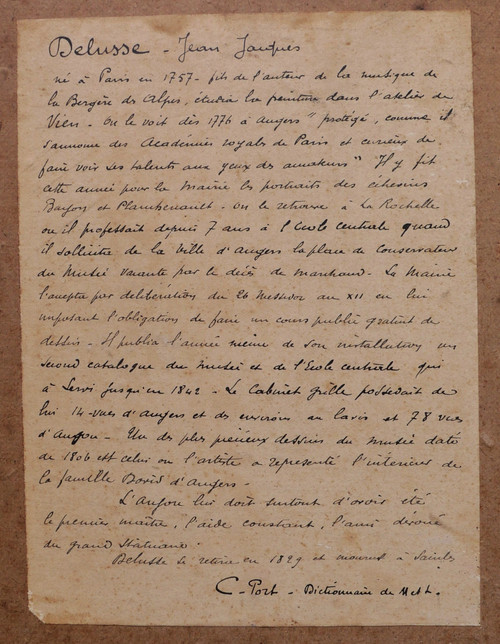 Delusse - Jean Jacques
né à Paris en 1757 - fils de l'auteur de la musique de
la Bergère des Alpes, étudia la peinture dans l'atelier de
Vien - On le voit dès 1776 à Angers " protégé, comme il
s'annonce des Académies royales de Paris et curieux de
faire voir ses talents aux yeux des amateurs " Il y fit
cette année pour la Mairie les portraits des échevins
et Planchenault - on le retrouve à La Rochelle
où il professait depuis 7 ans à l'Ecole centrale quand
il sollicite de la Ville d'Angers la place de Conservateur
du Musée vacante par le décès de Marchand - La Mairie
l'accepta par délibération du 26 Messidor an XII en lui
imposant l'obligation de faire un cours public gratuit de
dessin - Il publia l'année même de son installation un
second catalogue du musée et de l'Ecole centrale qui
a servi jusqu'en 1842 - Le Cabinet Grille possédait de
lui 14 vues d'Angers et des environs au lavis et 78 vues
d'Anjou - Un des plus précieux dessins du musée date
de 1806 est celui où l'artiste a représenté l'intérieur de
la famille David d'Angers -
L'Anjou lui doit surtout d'avoir été
le premier maître, l'aide constant, l'ami dévoué
du grand Statuaire.
Delusse se retire en 1829 et mourut à
C - Port - Dictionnaire de M et L.